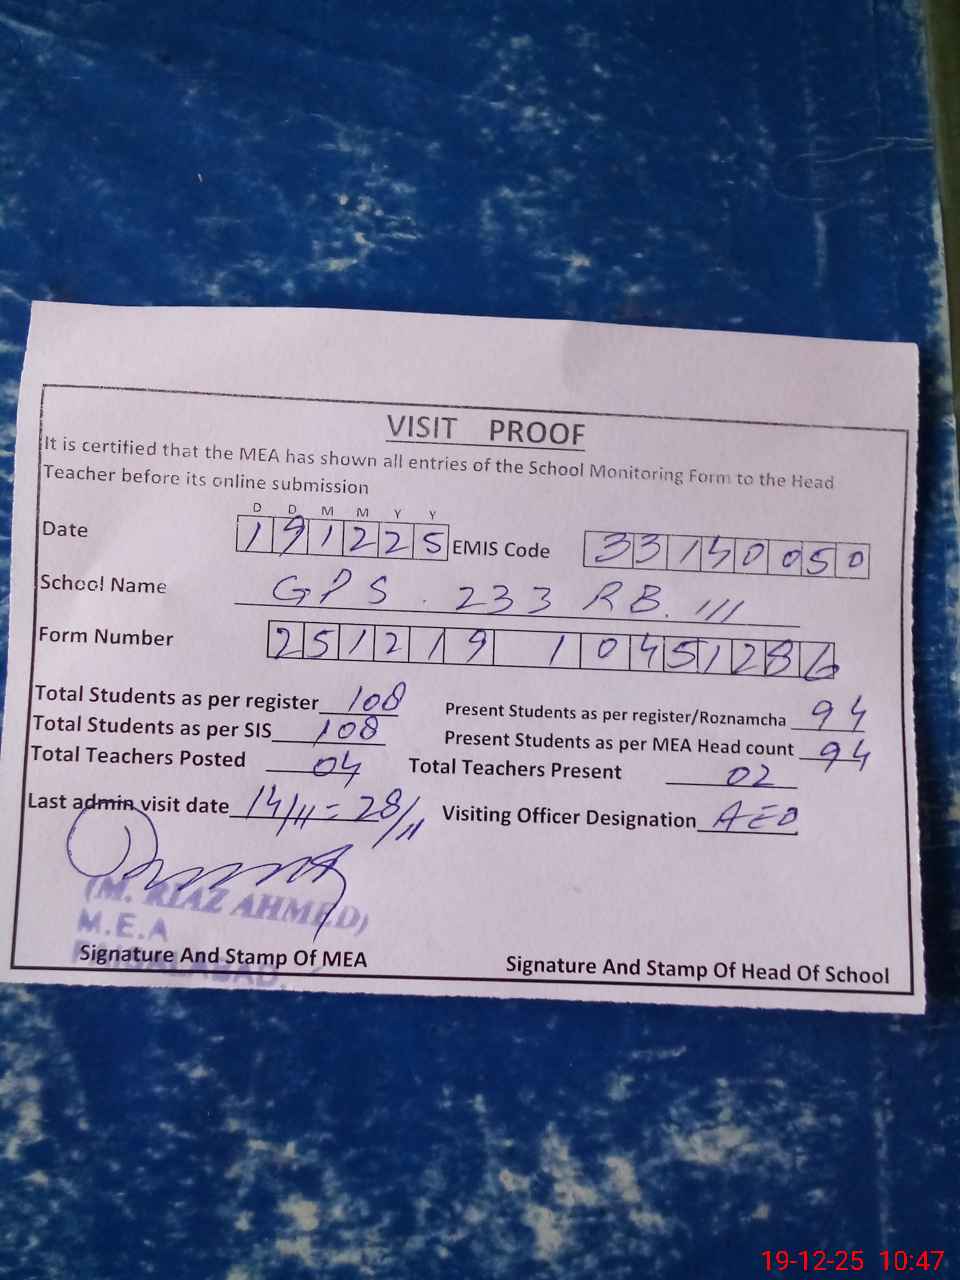 VISIT PROOF
It is certified that the MEA has shown all entries of the School Monitoring Form to the Head
Teacher before its online submission
D D M M Y Y
Date 191225 EMIS Code 33140050
School Name GPS. 233 RB. III
Form Number 251219 10451286
Total Students as per register 108 Present Students as per register/Roznamcha 94
Total Students as per SIS 108 Present Students as per MEA Head count 94
Total Teachers Posted 04 Total Teachers Present 02
Last admin visit date 14/11 = 28/11 Visiting Officer Designation AEO
(M. RIAZ AHMED)
M.E.A
FAISALABAD.
Signature And Stamp Of MEA Signature And Stamp Of Head Of School
19-12-25 10:47